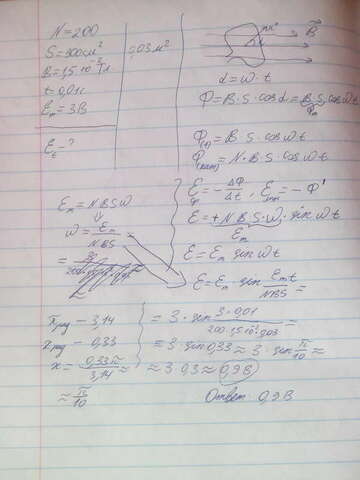 N=200
S=300см² 0,03м²
B=1,5·10⁻³Тл
t=0,01с
Eₘ=3В
Eₜ-?
n n⃗ B⃗
α
α=ω·t
Ф=B·S·cosα=B·S·cosωt
Фₘ
Ф(t)=B·S·cosωt
Ф(кат)=N·B·S·cosωt
E=-ΔФ/Δt, E=-Ф'
E=+NBS·ω·sinωt
Eₘ
E=Eₘ sinωt
Eₘ=NBSω
⇓
ω=Eₘ/NBS=
E=Eₘ·sin Eₘt/NBS=
π рад - 3,14
x рад - 0,33
x=0,33π/3,14≈
≈π/10
=3·sin 3·0,01/200·1,5·10⁻³·0,03=
=3·sin0,33≈3·sin π/10≈
≈3·0,3≈0,9В
Ответ 0,9В